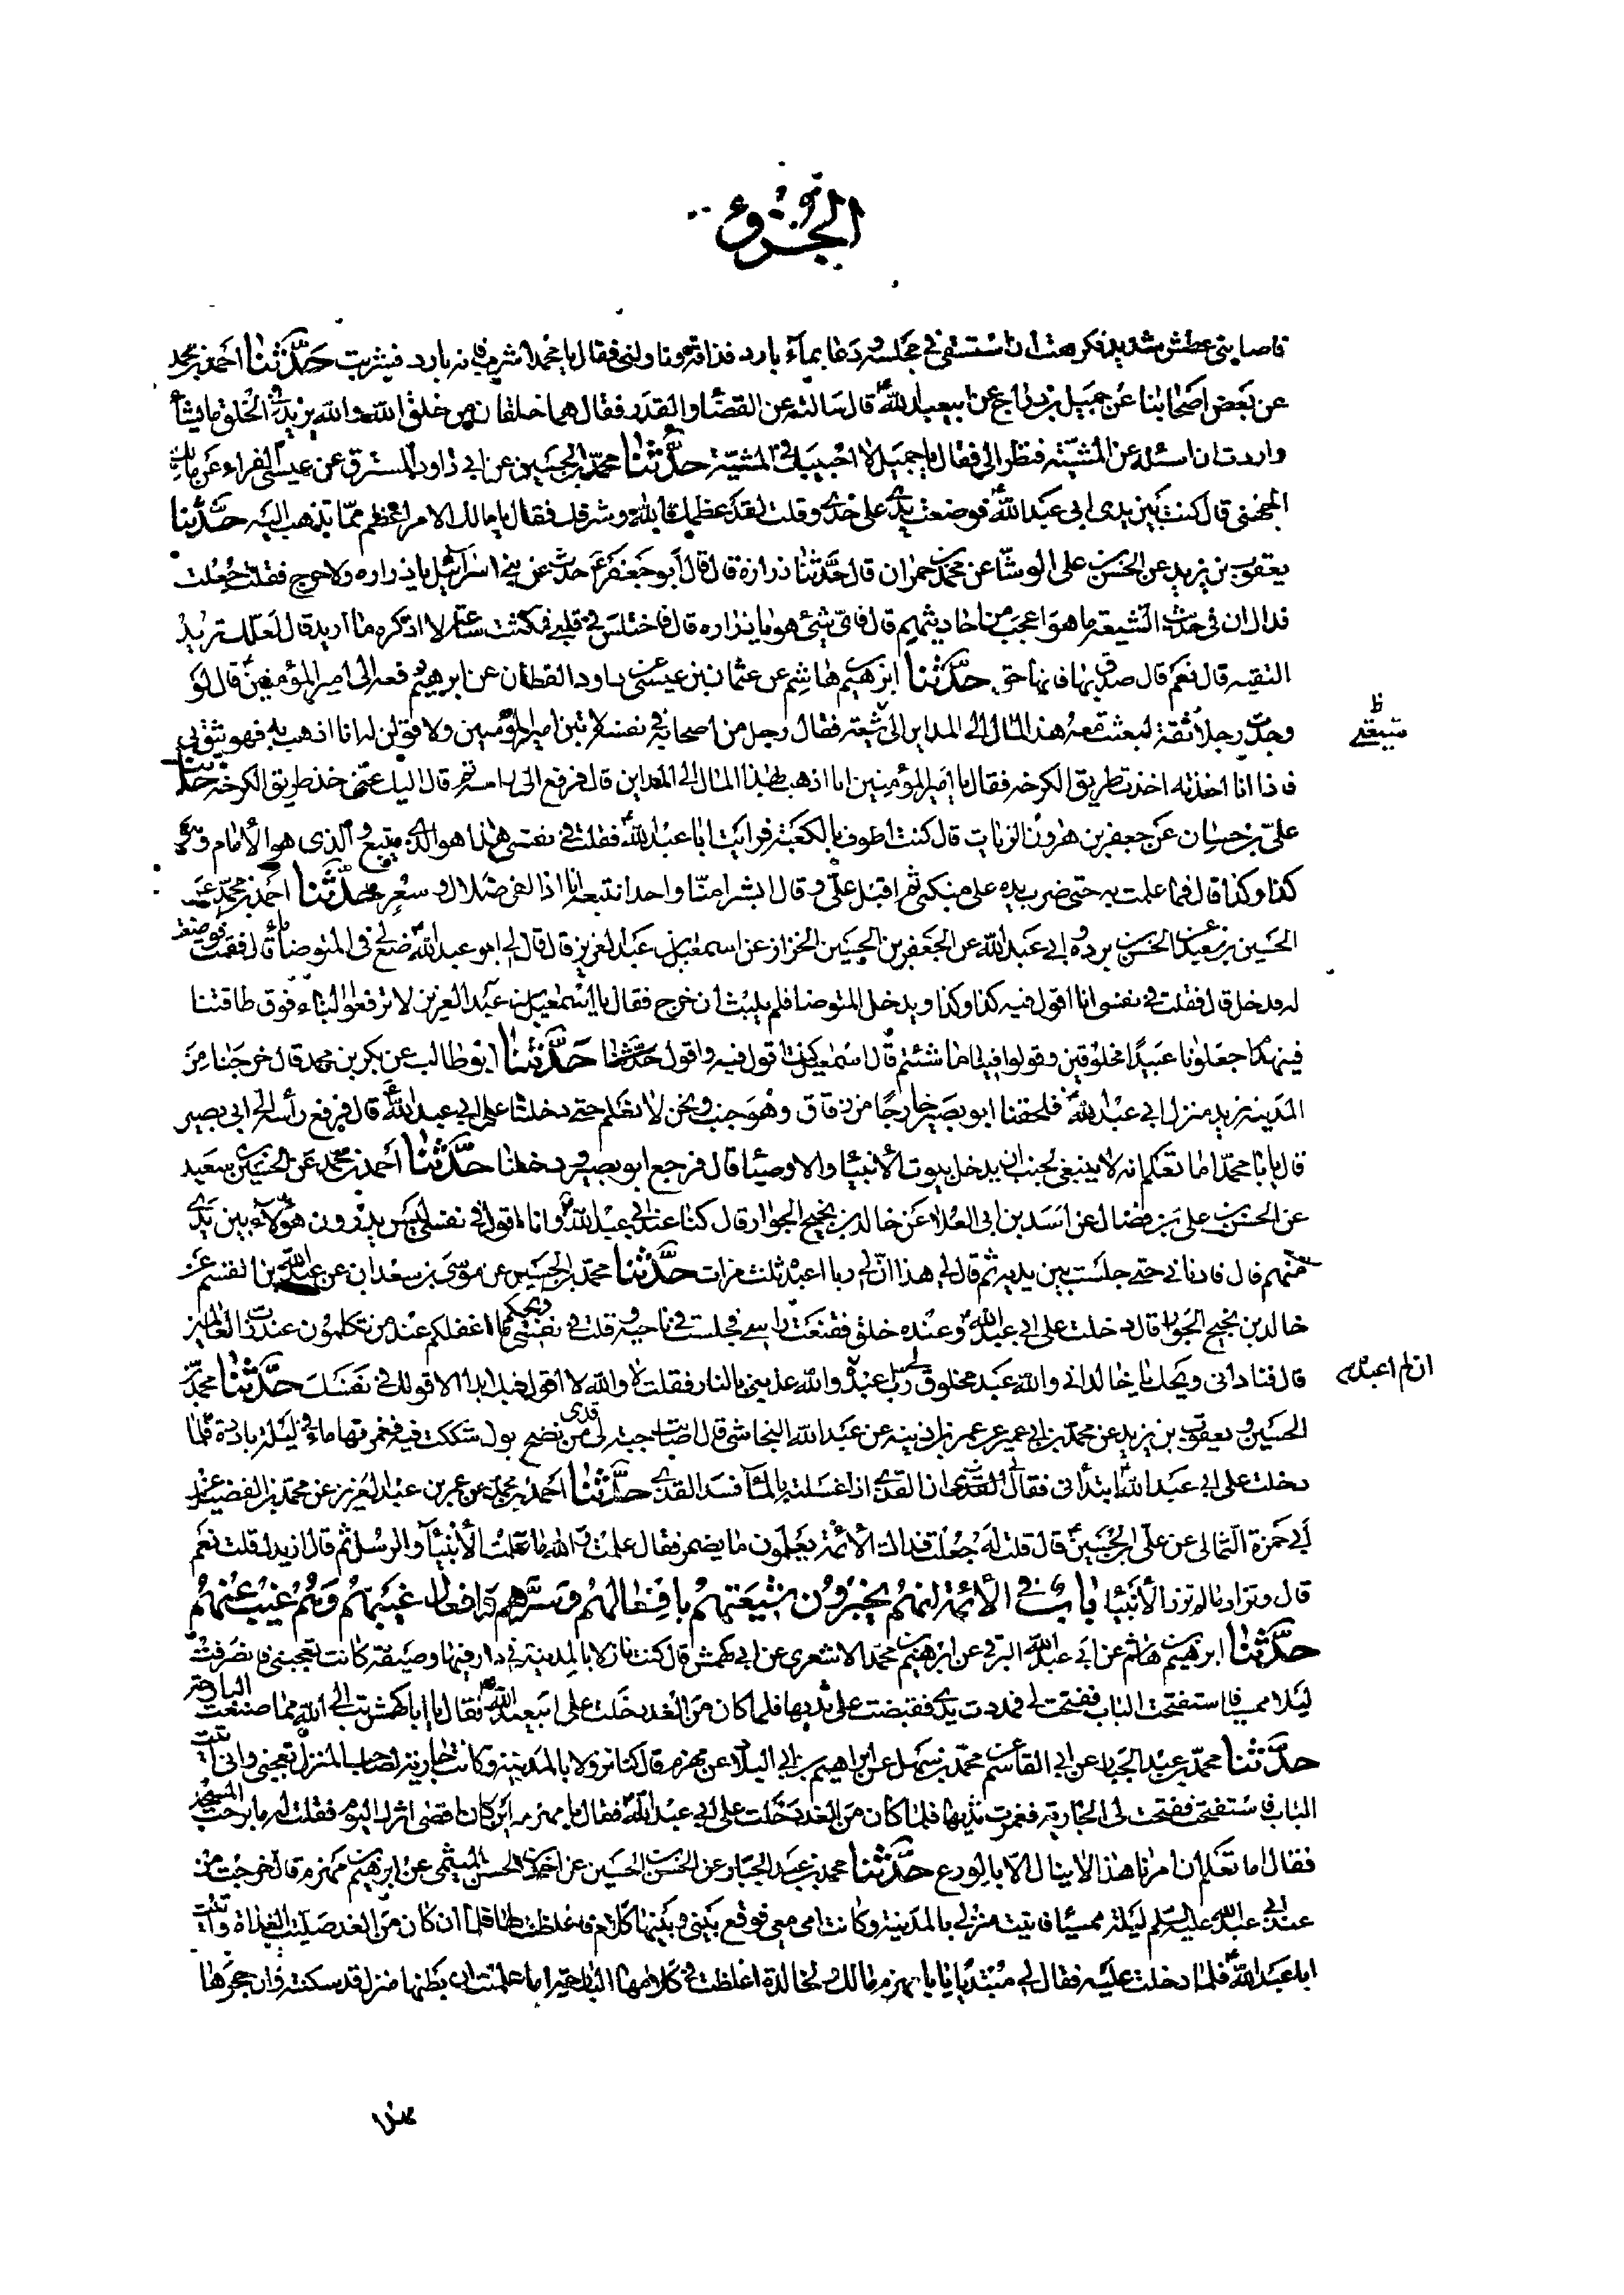 الجزؤ
فاصابنى عطش شديد فكرهت ان استسقى فى مجلسه ودعا بماء بارد فذاقه وناولنى فقال يا محمد اشرب فانه بارد فشربت حدّثنا احمد بن محمد
عن بعض اصحابنا عن جميل بن دراج عن ابيعبد الله ع قال سالته عن القضا والقدر فقال هما خلقان من خلق الله والله يزيد فى الخلق ما يشأ
واردت ان اسئله عن المشيّة فنظر الى فقال يا جميل لا اجيبك فى المشيّة حدّثنا محمد بن الحسين عن ابى داود المسترق عن عيسى الفراء عن مالك
الجهنى قال كنت بين يدى ابى عبد الله ع فوضعت يدى على خدى وقلت لقد عظمك الله وشرفك فقال يا مالك الامر اعظم ممّا تذهب اليه حدّثنا
يعقوب بن يزيد عن الحسن بن على الوشّا عن محمد بن حمران قال حدّثنا زرارة قال قال ابو جعفر ع حدث عن بنى اسرائيل يا زراره ولا حرج فقلت جعلت
فداك ان فى حديث الشيعة ما هو اعجب من احاديثهم قال فاى شئ هو يا زراره قال فاختلس فى قلبى فمكثت ساعة لا اذكره ما اريد قال لعلك تريد
التقيه قال نعم قال صدق بها فانها حق حدّثنا ابرهيم بن هاشم عن عثمان بن عيسى عن داود القطان عن ابرهيم رفعه الى امير المؤمنين ع قال لو
وجدت رجلاً ثقة لبعثت معه هذا المال الى المداين الى شيعة فقال رجل من اصحابه فى نفسه لاتين امير المؤمنين ولاقولن له انا اذهب به فهو يثق بى
ظ
شيعتى
فاذا انا اخذته اخذت طريق الكرخه فقال يا امير المؤمنين انا اذهب بهذا المال الى المداين قال فرفع الى راسه ثم قال اليك عنى خذ طريق الكرخه حدثنا
علىّ بن حسان عن جعفر بن هرون الزيات قال كنت اطوف بالكعبة فرايت ابا عبد الله ع فقلت فى نفسى هذا هو الذى يتبع والذى هو الامام وهو
كذا وكذا قال فما علمت به حتى ضرب يده على منكبى ثم اقبل علىّ وقال ابشرا منّا واحدا نتبعه انا اذا لفى ضلال وسعر حدّثنا احمد بن محمد عن
الحسين بن سعيد عن الحسن بن برده عن ابى عبد الله ع عن الجعفر بن الحسين الخزاز عن اسمعيل بن عبد العزيز قال قال لى ابو عبد الله ع ضع لى فى المتوضأ ماء قال فقمت فوضعت
له فدخل قال فقلت فى نفسى انا اقول فيه كذا وكذا ويدخل المتوضا فلم يلبث ان خرج فقال يا اسمعيل بن عبد العزيز لا ترفعوا البناء فوق طاقتنا
فينهدم اجعلونا عبيدًا مخلوقين وقولوا فينا ما شئتم قال اسمعيل كنت اقول فيه واقول حدّثنا ابو طالب عن بكر بن محمد قال خرجنا من
المدينه نريد منزل ابى عبد الله ع فلحقنا ابو بصير خارجًا من زقاق وهو جنب ونحن لا نعلم حتى دخلنا على ابى عبد الله ع قال فرفع رأسه الى ابى بصير
قال يابا محمد اما تعلم انه لا ينبغى لجنب ان يدخل بيوت الانبيا والاوصيا قال فرجع ابو بصير ودخلنا حدّثنا احمد بن محمد عن الحسين بن سعيد
عن الحسن بن على بن فضال عن اسد بن ابى العلا عن خالد بن نجيح الجوار قال كنا عند ابى عبد الله ع وانا اقول فى نفسى ليس يدرون هؤلاء بين يدى
منهم قال فادنانى حتى جلست بين يديه ثم قال لى هذا انّ لى ربا اعبد ثلث مرات حدّثنا محمد بن الحسين عن موسى بن سعدان عن عبد الله بن القسم عن
خالد بن نجيح الجوار قال دخلت على ابى عبد الله ع وعنده خلق فقنعت راسى فجلست فى ناحيه وقلت فى نفسى ويحكم ما اغفلكم عند من تكلمون عند رب العالمين
قال فنادانى ويحك يا خالد انى والله عبد مخلوق لى رب اعبده والله عذبنى بالنار فقلت لا والله لا اقول فيك ابدا الا قولك فى نفسك حدّثنا محمد بن
ان لم اعبده
الحسين ويعقوب بن يزيد عن محمد بن ابى عمير عن عمر بن اذينه عن عبد الله النجاشى قال اصاب جبة لى فرى من نضح بول شككت فيه فغمرتها ماء فى ليلة باردة فلما
دخلت على ابى عبد الله ع ابتدأنى فقال ان الفرى اذا غسلته بالماء فسد الفرى حدّثنا احمد بن محمد عن عمر بن عبد العزيز عن محمد بن الفضيل عن
ابى حمزة الثمالى عن على بن الحسين ع قال قلت له جعلت فداك الائمة يعلمون ما يضمر فقال علمت والله ما علمت الانبياء والرسل ثم قال ازيدك قلت نعم
قال ونزاد ما لم تزد الانبيا باب فى الائمة انهم يخبرون شيعتهم بافعالهم وسرّهم وافعال غيبهم وهم غيب عنهم
حدّثنا ابرهيم بن هاشم عن ابى عبد الله البرقى عن ابرهيم بن محمد الاشعرى عن ابى كهمش قال كنت نازلا بالمدينة فى دار فيها وصيفة كانت تعجبنى فانصرفت
ليلا ممسيا فاستفتحت الباب ففتحت لى فمددت يدى فقبضت على ثديها فلما كان من الغد دخلت على ابيعبد الله ع فقال يا ابا كهمش تب الى الله مما صنعت البارحة
حدّثنا محمد بن عبد الجبار عن ابى القاسم عن محمد بن سهل عن ابراهيم بن ابى البلاد عن مهزم قال كنا نزولا بالمدينه وكانت جارية لصاحب المنزل تعجبنى وانى اتيت
الباب فاستفتحت ففتحت لى الجارية فغمزت ثديها فلما كان من الغد دخلت على ابى عبد الله ع فقال يا مهزم اين كان اقصى اثرك اليوم فقلت له ما برحت المسجد
فقال اما تعلم ان امرنا هذا لا ينال الّا بالورع حدّثنا محمد بن عبد الجبار عن الحسن بن الحسين عن احمد بن الحسن الميثمى عن ابرهيم بن مهزم قال خرجت من
عند ابى عبد الله عليه السلم ليلة ممسيًا فاتيت منزلى بالمدينة وكانت امى معى فوقع بينى وبينها كلام فاغلظت لها فلما ان كان من الغد صليت الغداة واتيت
ابا عبد الله ع فلما دخلت عليه فقال لى مبتديًا يابا مهزم مالك ولخالدة اغلظت فى كلامها البارحة اما علمت ان بطنها منزل قد سكنته وان حجرها